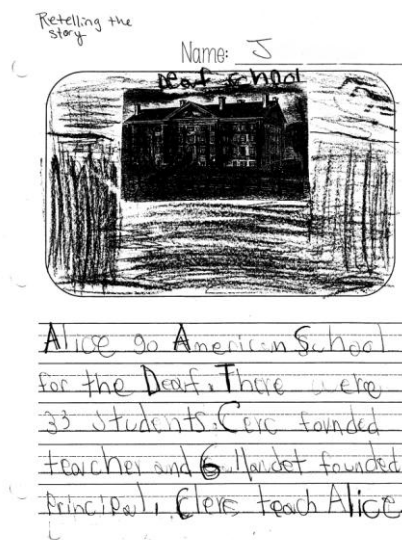 Retelling the
story
Name: J
Deaf School
Alice go American School
for the Deaf. There were
33 students. Cerc founded
teacher and Gallandet founded
principal. Clerc teach Alice